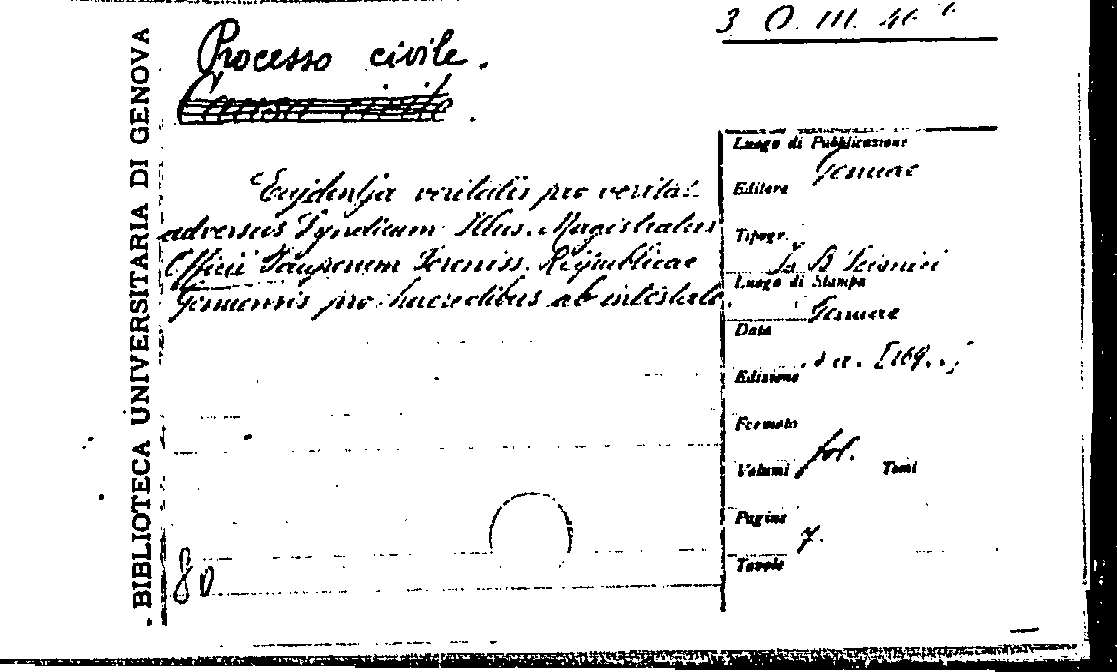 BIBLIOTECA UNIVERSITARIA DI GENOVA
3 O. III. 46
Processo civile.
Causa civile.
Evjdentja veritatis pro veritat.
adversus Syndicum Illus. Magistratus
Officii Pauperum Sereniss. Republicae
Genuensis pro haeredibus ab intestato.
Luogo di Pubblicazione
Genuae
Editore
Tipogr.
Luogo di Stampa
Genuae
Data
s. a. [169..]
Edizione
Formato
fol.
Volumi
Tomi
Pagine
7.
Tavole
80